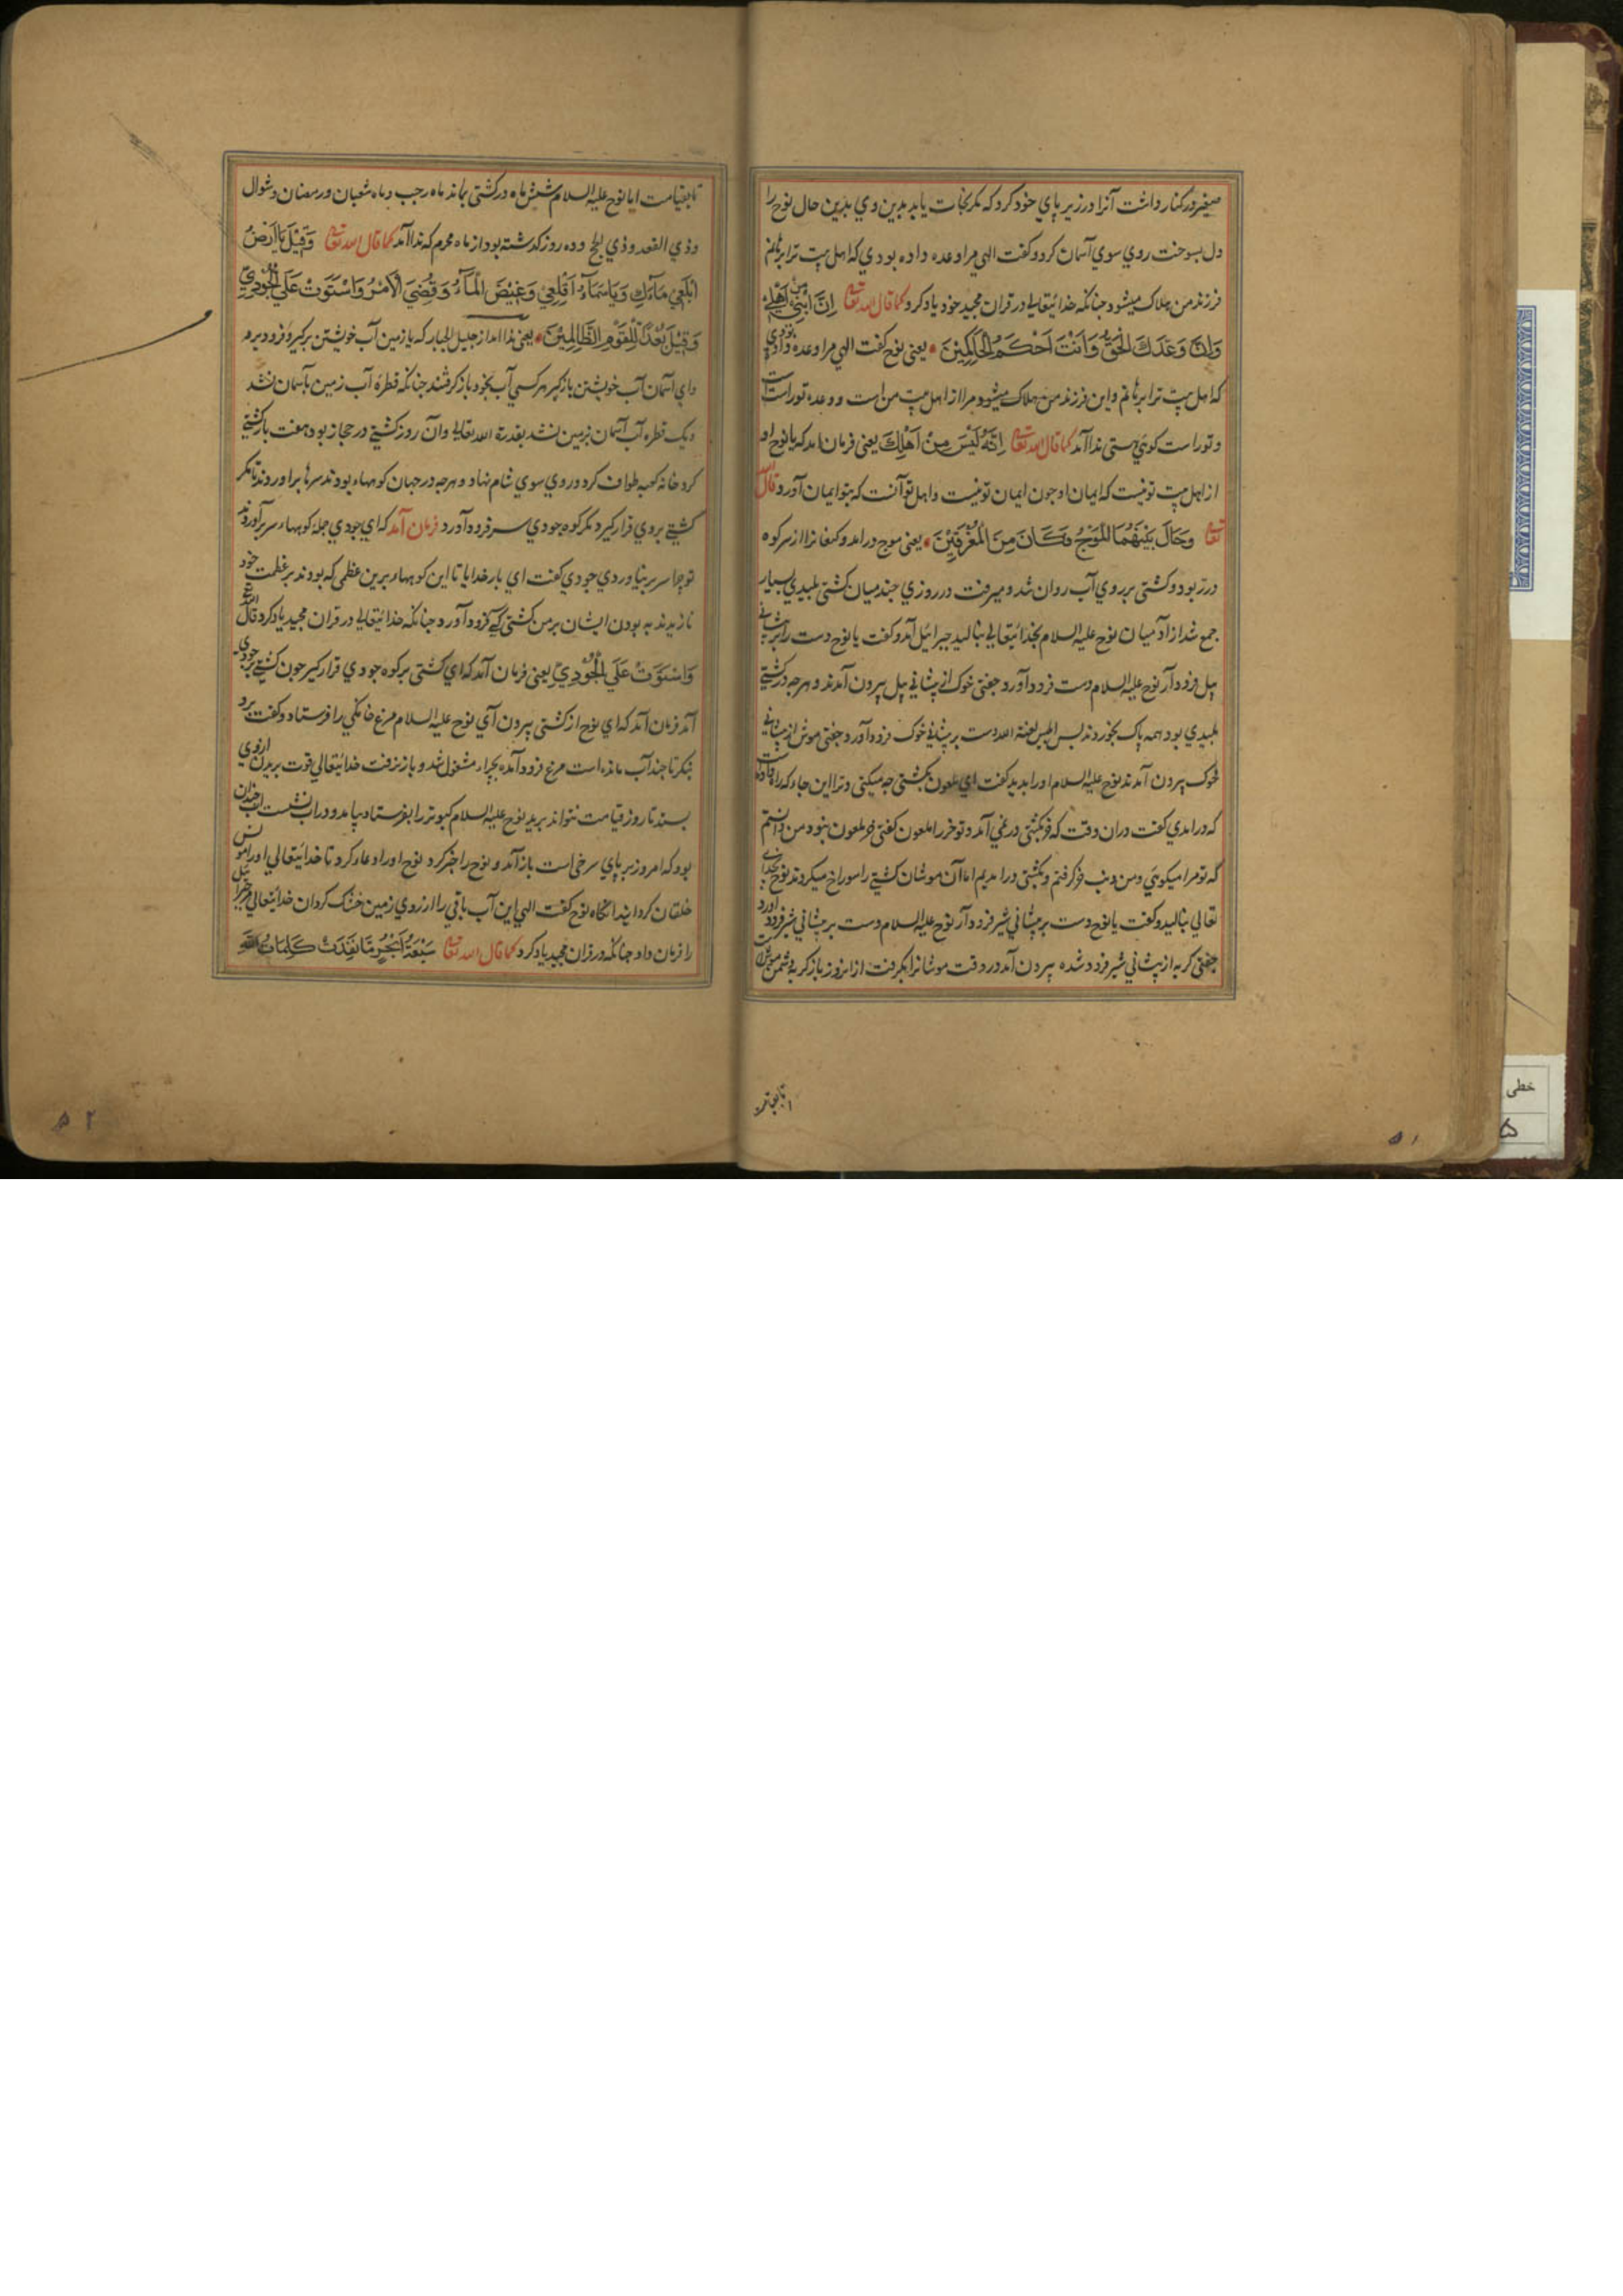 صغیر در کنار داشت آنرا در زیر پای خود کرد که مکر نجات یابد بدین وی بدین حال نوح را
دل بسوخت روی سوی آسمان کرد و کفت الهی مرا وعده داده بودی که اهل بیت ترا برهانم
فرزند من هلاک میشود جنانکه خدایتعالی در قران مجید خود یاد کرد کما قال الله تعا اِنَّ ابْنِي مِنْ اَهْلِي
وَاِنَّ وَعْدَكَ الْحَقُّ وَاَنْتَ اَحْكَمُ الْحَاكِمِيْنَ یعنی نوح کفت الهی مرا وعده داده بودی
که اهل بیت ترا برهانم و این فرزند من هلاک میشود مرا از اهل بیت من است و وعده تو راست است
و تو راست کوی هستی ندا آمد کما قال الله تعا اِنَّهُ لَيْسَ مِنْ اَهْلِكَ یعنی فرمان امد که یا نوح او
از اهل بیت تو نیست که ایمان او جون ایمان تو نیست و اهل تو آنست که بتو ایمان آورد قال الله
تعا وَحَالَ بَيْنَهُمَا الْمَوْجُ فَكَانَ مِنَ الْمُغْرَقِيْنَ یعنی موج در امد و کنعانرا از سر کوه
در ربود و کشتی بر روی آب روان شد و میرفت در روزی جند میان کشتی پلیدی بسیار
جمع شد از آدمیان نوح علیه السلام بخدایتعالی بنالید جبرائیل آمد و کفت یا نوح دست را بر پشانی
پیل فرود آر نوح علیه السلام دست فرود آورد جفتی خوک از پشانی پیل بیرون آمدند و هر جه در کشتی
پلیدی بود همه پاک بخوردند پس ابلیس لعنة الله دست بر پشانی خوک فرود آورد جفتی موش از پشانی
خوک بیرون آمدند نوح علیه السلام او را بدید کفت ای ملعون بکشتی جه میکنی و ترا این جاء که راه داد
که در امدی کفت دران وقت که خر بکشتی در نمی آمد و تو خر را ملعون کفتی خر ملعون نبود من دانستم
که تو مرا میکویی و من دنب خر کرفتم و بکشتی در امدیم اما آن موشان کشتی را سوراخ میکردند نوح بخدای
تعالی بنالید و کفت یا نوح دست بر پشانی شیر فرود آر نوح علیه السلام دست بر پشانی شیر فرود اورد
جفتی کربه از پشانی شیر فرود شده بیرون آمد در وقت موشانرا بکرفت از انروز باز کربه دشمن موش است
تا بقیامت
تا بقیامت اما نوح علیه السلام شش ماه در کشتی بماند ماه رجب و ماه شعبان و رمضان و شوال
و ذی القعد و ذی الحج و ده روز کذشته بود از ماه محرم که ندا آمد کما قال الله تعا وَقِيْلَ يَا اَرْضُ
ابْلَعِي مَاءَكِ وَيَا سَمَاءُ اَقْلِعِي وَغِيْضَ الْمَآءُ وَقُضِيَ الْاَمْرُ وَاسْتَوَتْ عَلَي الْجُوْدِيِّ
وَقِيْلَ بُعْدًا لِلْقَوْمِ الظَّالِمِيْنَ یعنی ندا امد از جلیل الجبار که یا زمین آب خویشتن برکیر و فرود بر
و ای آسمان آب خویشتن باز کیر هر کسی آب بخود باز کرفتند جنانکه قطره آب زمین بآسمان نشد
و یک قطره آب آسمان بزمین نشد بقدرة الله تعالی و آن روز کشتی در حجاز بود هفت بار کشتی
کرد خانه کعبه طواف کرد و روی سوی شام نهاد و هر جه در جهان کوهها بودند سرها بر اوردند تا مکر
کشتی بر وی قرار کیرد مکر کوه جودی سر فرود آورد فرمان آمد که ای جودی جمله کوهها سر بر آوردند
تو جرا سر بر نیاوردی جودی کفت ای بار خدایا تا این کوهها برین عظمی که بودند بر عظمت خود
نازیدند به بودن ایشان بر من کشتی کی فرود آورد جنانکه خدایتعالی در قران مجید یاد کرد قال الله تع
وَاسْتَوَتْ عَلَي الْجُوْدِيِّ یعنی فرمان آمد که ای کشتی بر کوه جودی قرار کیر جون کشتی بر جودی
آمد فرمان آمد که ای نوح از کشتی بیرون آی نوح علیه السلام مرغ خانکی را فرستاد و کفت برو
بنکر تا جند آب مانده است مرغ فرود آمد بچرا مشغول شد و باز نرفت خدایتعالی قوت پریدن از وی
بستد تا روز قیامت نتواند پرید نوح علیه السلام کبوتر را بفرستاد بیامد و در اب نشست اب جندان
بود که امروز بر پای سرخی است باز آمد و نوح را خبر کرد نوح او را دعا کرد تا خدایتعالی او را مونس
خلقان کردانید انکاه نوح کفت الهی این آب باقی را از روی زمین خشک کردان خدایتعالی جبرائیل
را فرمان داد جنانکه در قران مجید یاد کرد کما قال الله تعا سَبْعَةُ اَبْحُرٍ مَّا نَفِدَتْ كَلِمَاتُ اللهِ
۵۱
۵۲
خطی